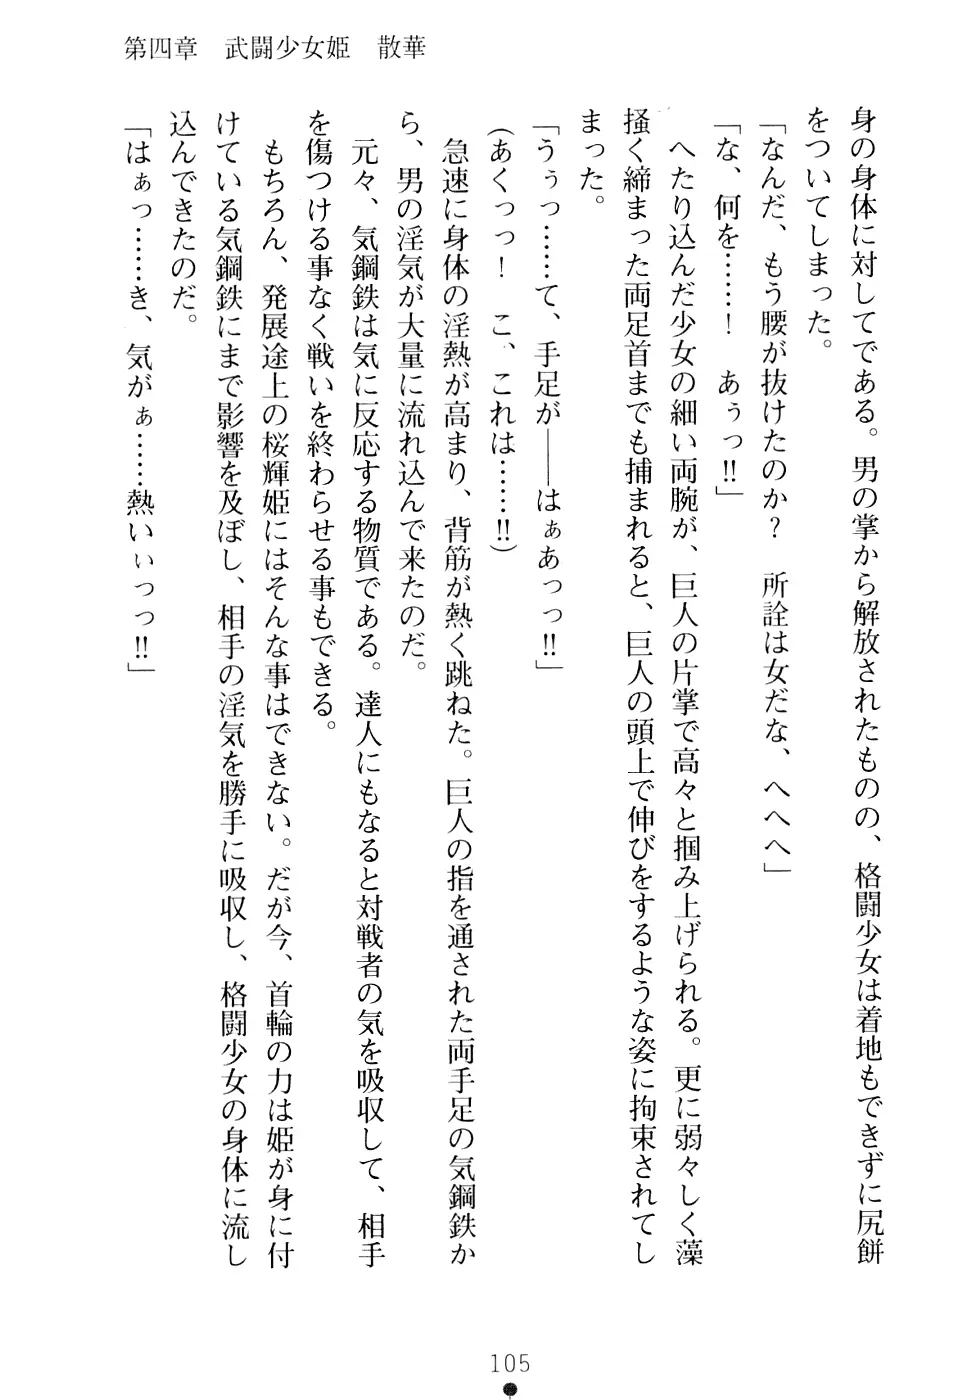 第四章　武闘少女姫　散華
身の身体に対してである。男の掌から解放されたものの、格闘少女は着地もできずに尻餅
をついてしまった。
「なんだ、もう腰が抜けたのか？　所詮は女だな、へへへ」
「な、何を……！　あぅっ‼」
へたり込んだ少女の細い両腕が、巨人の片掌で高々と掴み上げられる。更に弱々しく藻
掻く締まった両足首までも捕まれると、巨人の頭上で伸びをするような姿に拘束されてし
まった。
「うぅっ……て、手足が――はぁあっっ‼」
（あくっっ！　こ、これは……‼）
急速に身体の淫熱が高まり、背筋が熱く跳ねた。巨人の指を通された両手足の気鋼鉄か
ら、男の淫気が大量に流れ込んで来たのだ。
元々、気鋼鉄は気に反応する物質である。達人にもなると対戦者の気を吸収して、相手
を傷つける事なく戦いを終わらせる事もできる。
もちろん、発展途上の桜輝姫にはそんな事はできない。だが今、首輪の力は姫が身に付
けている気鋼鉄にまで影響を及ぼし、相手の淫気を勝手に吸収し、格闘少女の身体に流し
込んできたのだ。
「はぁっ……き、気がぁ……熱いぃっっ‼」
105